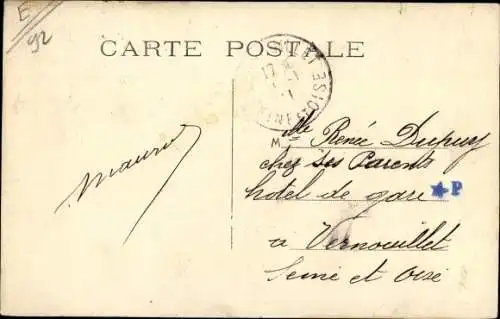 E
92
CARTE POSTALE
17
SEINE ET OISE
Maurice
Mlle Renée Dupuy
chez Ses Parents
hotel de gare
P
a Vernouillet
Seine et Oise